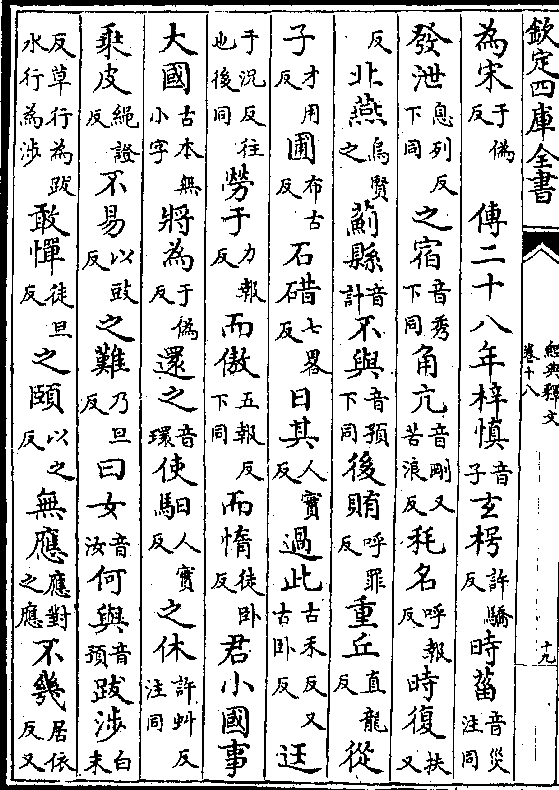 欽定四庫全書
經典釋文
卷十八
十九
為宋于偽反 傳二十八年梓慎音子玄枵許驕反時菑音災注同
發泄息列反下同之宿音秀下同角亢音剛又苦浪反秏名呼報反時復扶又
反北燕烏賢之薊縣音計不與音預下同後賄呼罪反重丘直龍反從
子才用反圃布古反石碏七畧反日其人實反過此古禾反又古卧反迋
于況反往也後同勞于力報反而傲五報反下同而惰徒卧反君小國事
大國古本無小字將為于偽反還之音環使馹人實反之休許虯反注同
乘皮繩證反不易以豉反之難乃旦反曰女音汝何與音預跋涉白末
反草行為跋水行為涉敢憚徒旦反之頤以之反無應應對之應不幾居依反又